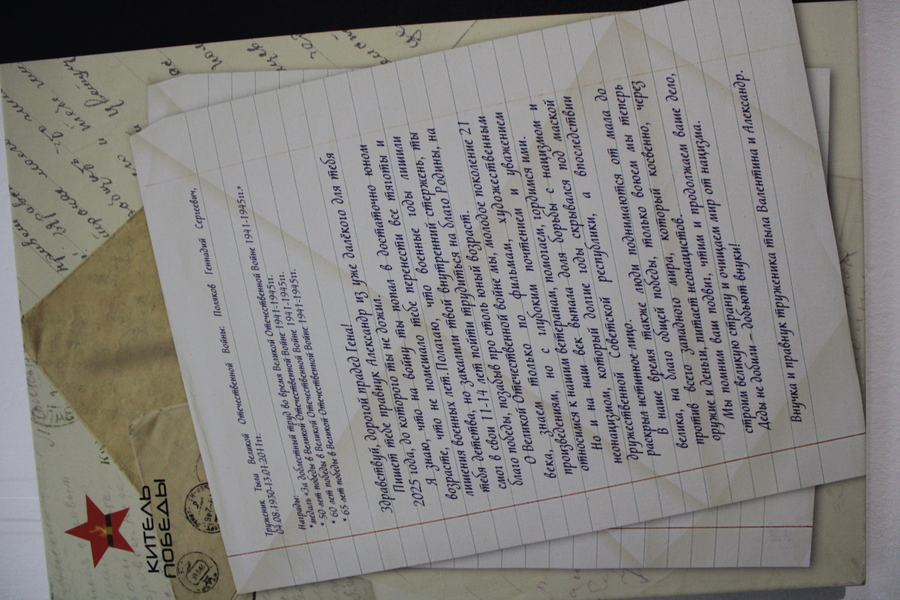 КИТЕЛЬ
ПОБЕДЫ
Труженик Тыла Великой Отечественной Войны: Поляков Геннадий Сергеевич,
04.08.1930-13.01.2011гг.
Награды:
*медаль «За доблестный труд во время Великой Отечественной Войне 1941-1945гг.»
* 50 лет победы в Великой Отечественной Войне 1941-1945гг.
* 60 лет победы в Великой Отечественной Войне 1941-1945гг.
* 65 лет победы в Великой Отечественной Войне 1941-1945гг.
Здравствуй, дорогой прадед Гена!
Пишет тебе правнук Александр из уже далёкого для тебя
2025 года, до которого ты не дожил.
Я знаю, что на войну ты попал в достаточно юном
возрасте, что не помешало тебе перенести все тяготы и
лишения военных лет. Полагаю, что военные годы лишили
тебя детства, но закалили твой внутренний стержень, ты
смог в свои 11-14 лет пойти трудиться на благо Родины, на
благо победы, позабыв про столь юный возраст.
О Великой Отечественной войне мы, молодое поколение 21
века, знаем только по фильмам, художественным
произведениям, но с глубоким почтением и уважением
относимся к нашим ветеранам, помогаем, гордимся ими.
Но и на наш век выпала доля борьбы с нацизмом и
неонацизмом, который долгие годы скрывался под маской
дружественной Советской республики, а впоследствии
раскрыл истинное лицо.
В наше время также люди поднимаются от мала до
велика, на благо общей победы, только воюем мы теперь
против всего западного мира, который косвенно, через
оружие и деньги, питает неонацистов.
Мы помним ваш подвиг, чтим и продолжаем ваше дело,
строим великую страну и очищаем мир от нацизма.
Деды не добили – добьют внуки!
Внучка и правнук труженика тыла Валентина и Александр.